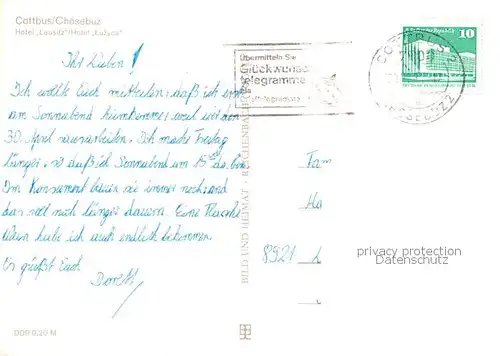 Cottbus/Chóśebuz
Hotel „Lausitz“/Hotel „Łužyca“
Ihr Lieben!
Ich wollte Euch mitteilen, daß ich erst am
Sonnabend heimkomme, weil wir den
30. April rausarbeiten. Ich mache Freitag
länger, so daß ich Sonnabend um 15 00 da bin.
Im Konsument bauen sie immer noch, und
das soll noch länger dauern. Eine Flasche
habe ich auch endlich bekommen.
Es grüßt Euch
DDR 0,20 M
BILD UND HEIMAT · REICHENBACH
Übermitteln Sie
Glückwunsch
telegramme
als
COTTBUS 2
CHOSEBUZ 2
10
Fam
Ha
8921 L
privacy protection
Datenschutz